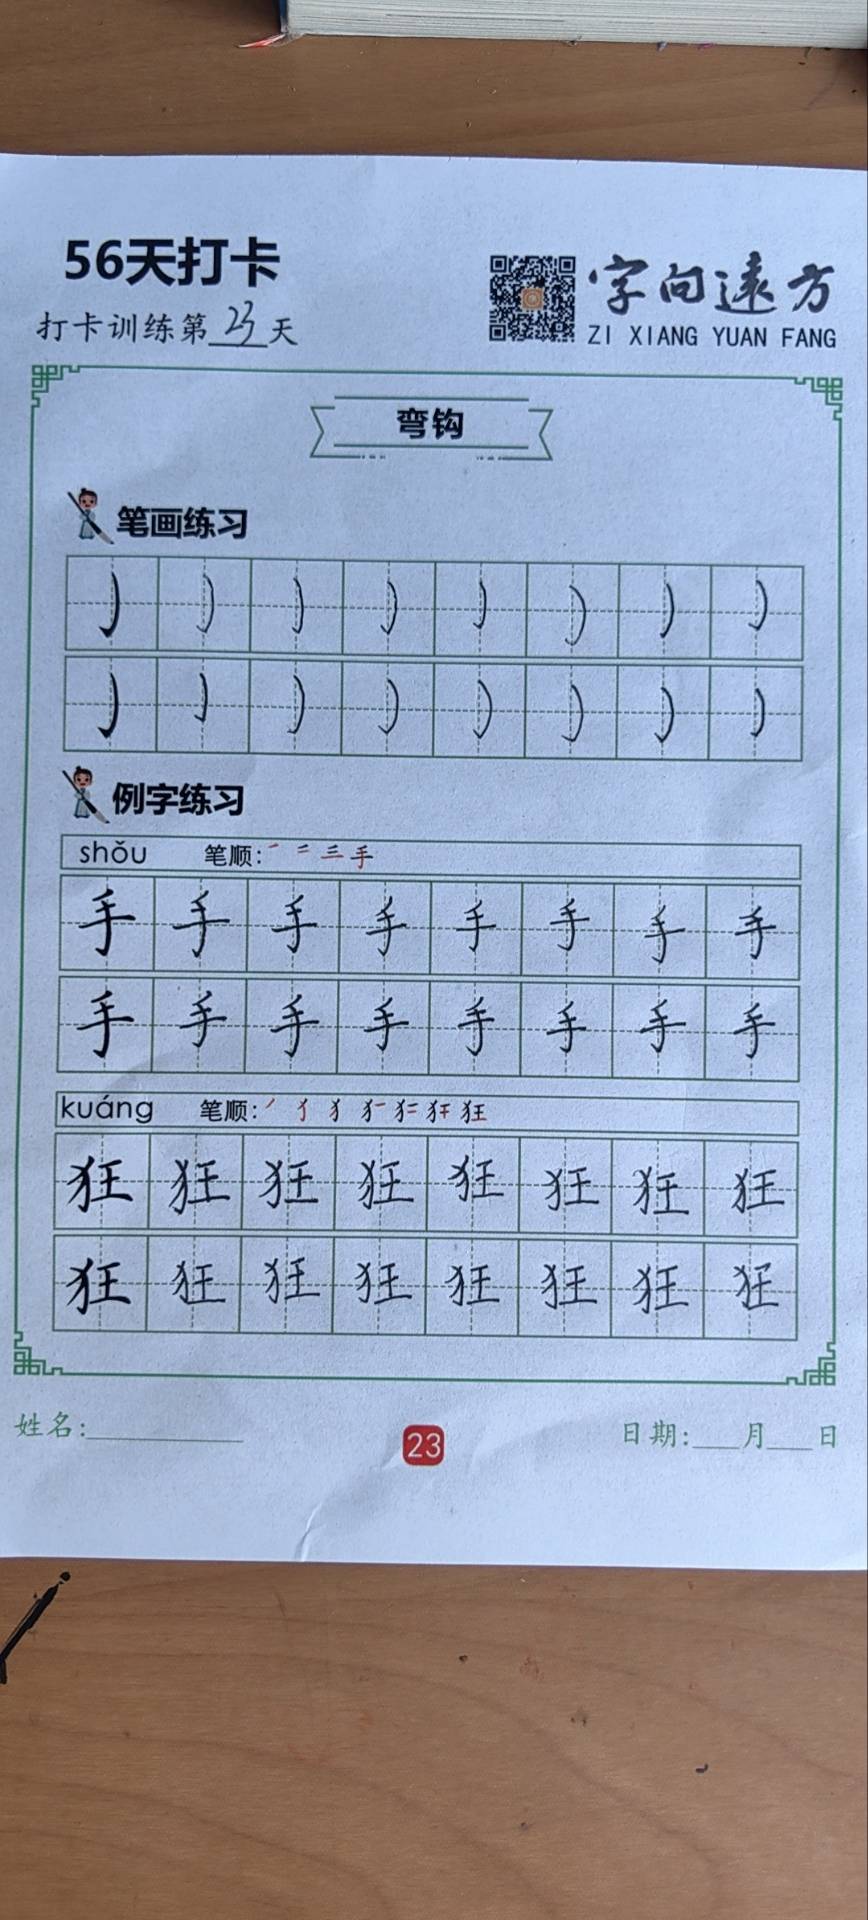 56天打卡
打卡训练第23天
字向遠方
ZI XIANG YUAN FANG
弯钩
笔画练习
㇁ ㇁ ㇁ ㇁ ㇁ ㇁ ㇁ ㇁
㇁ ㇁ ㇁ ㇁ ㇁ ㇁ ㇁ ㇁
例字练习
shǒu 笔顺: ㇒ 二 三 手
手 手 手 手 手 手 手 手
手 手 手 手 手 手 手 手
kuáng 笔顺: 狂
狂 狂 狂 狂 狂 狂 狂 狂
狂 狂 狂 狂 狂 狂 狂 狂
姓名:
23
日期: 月 日